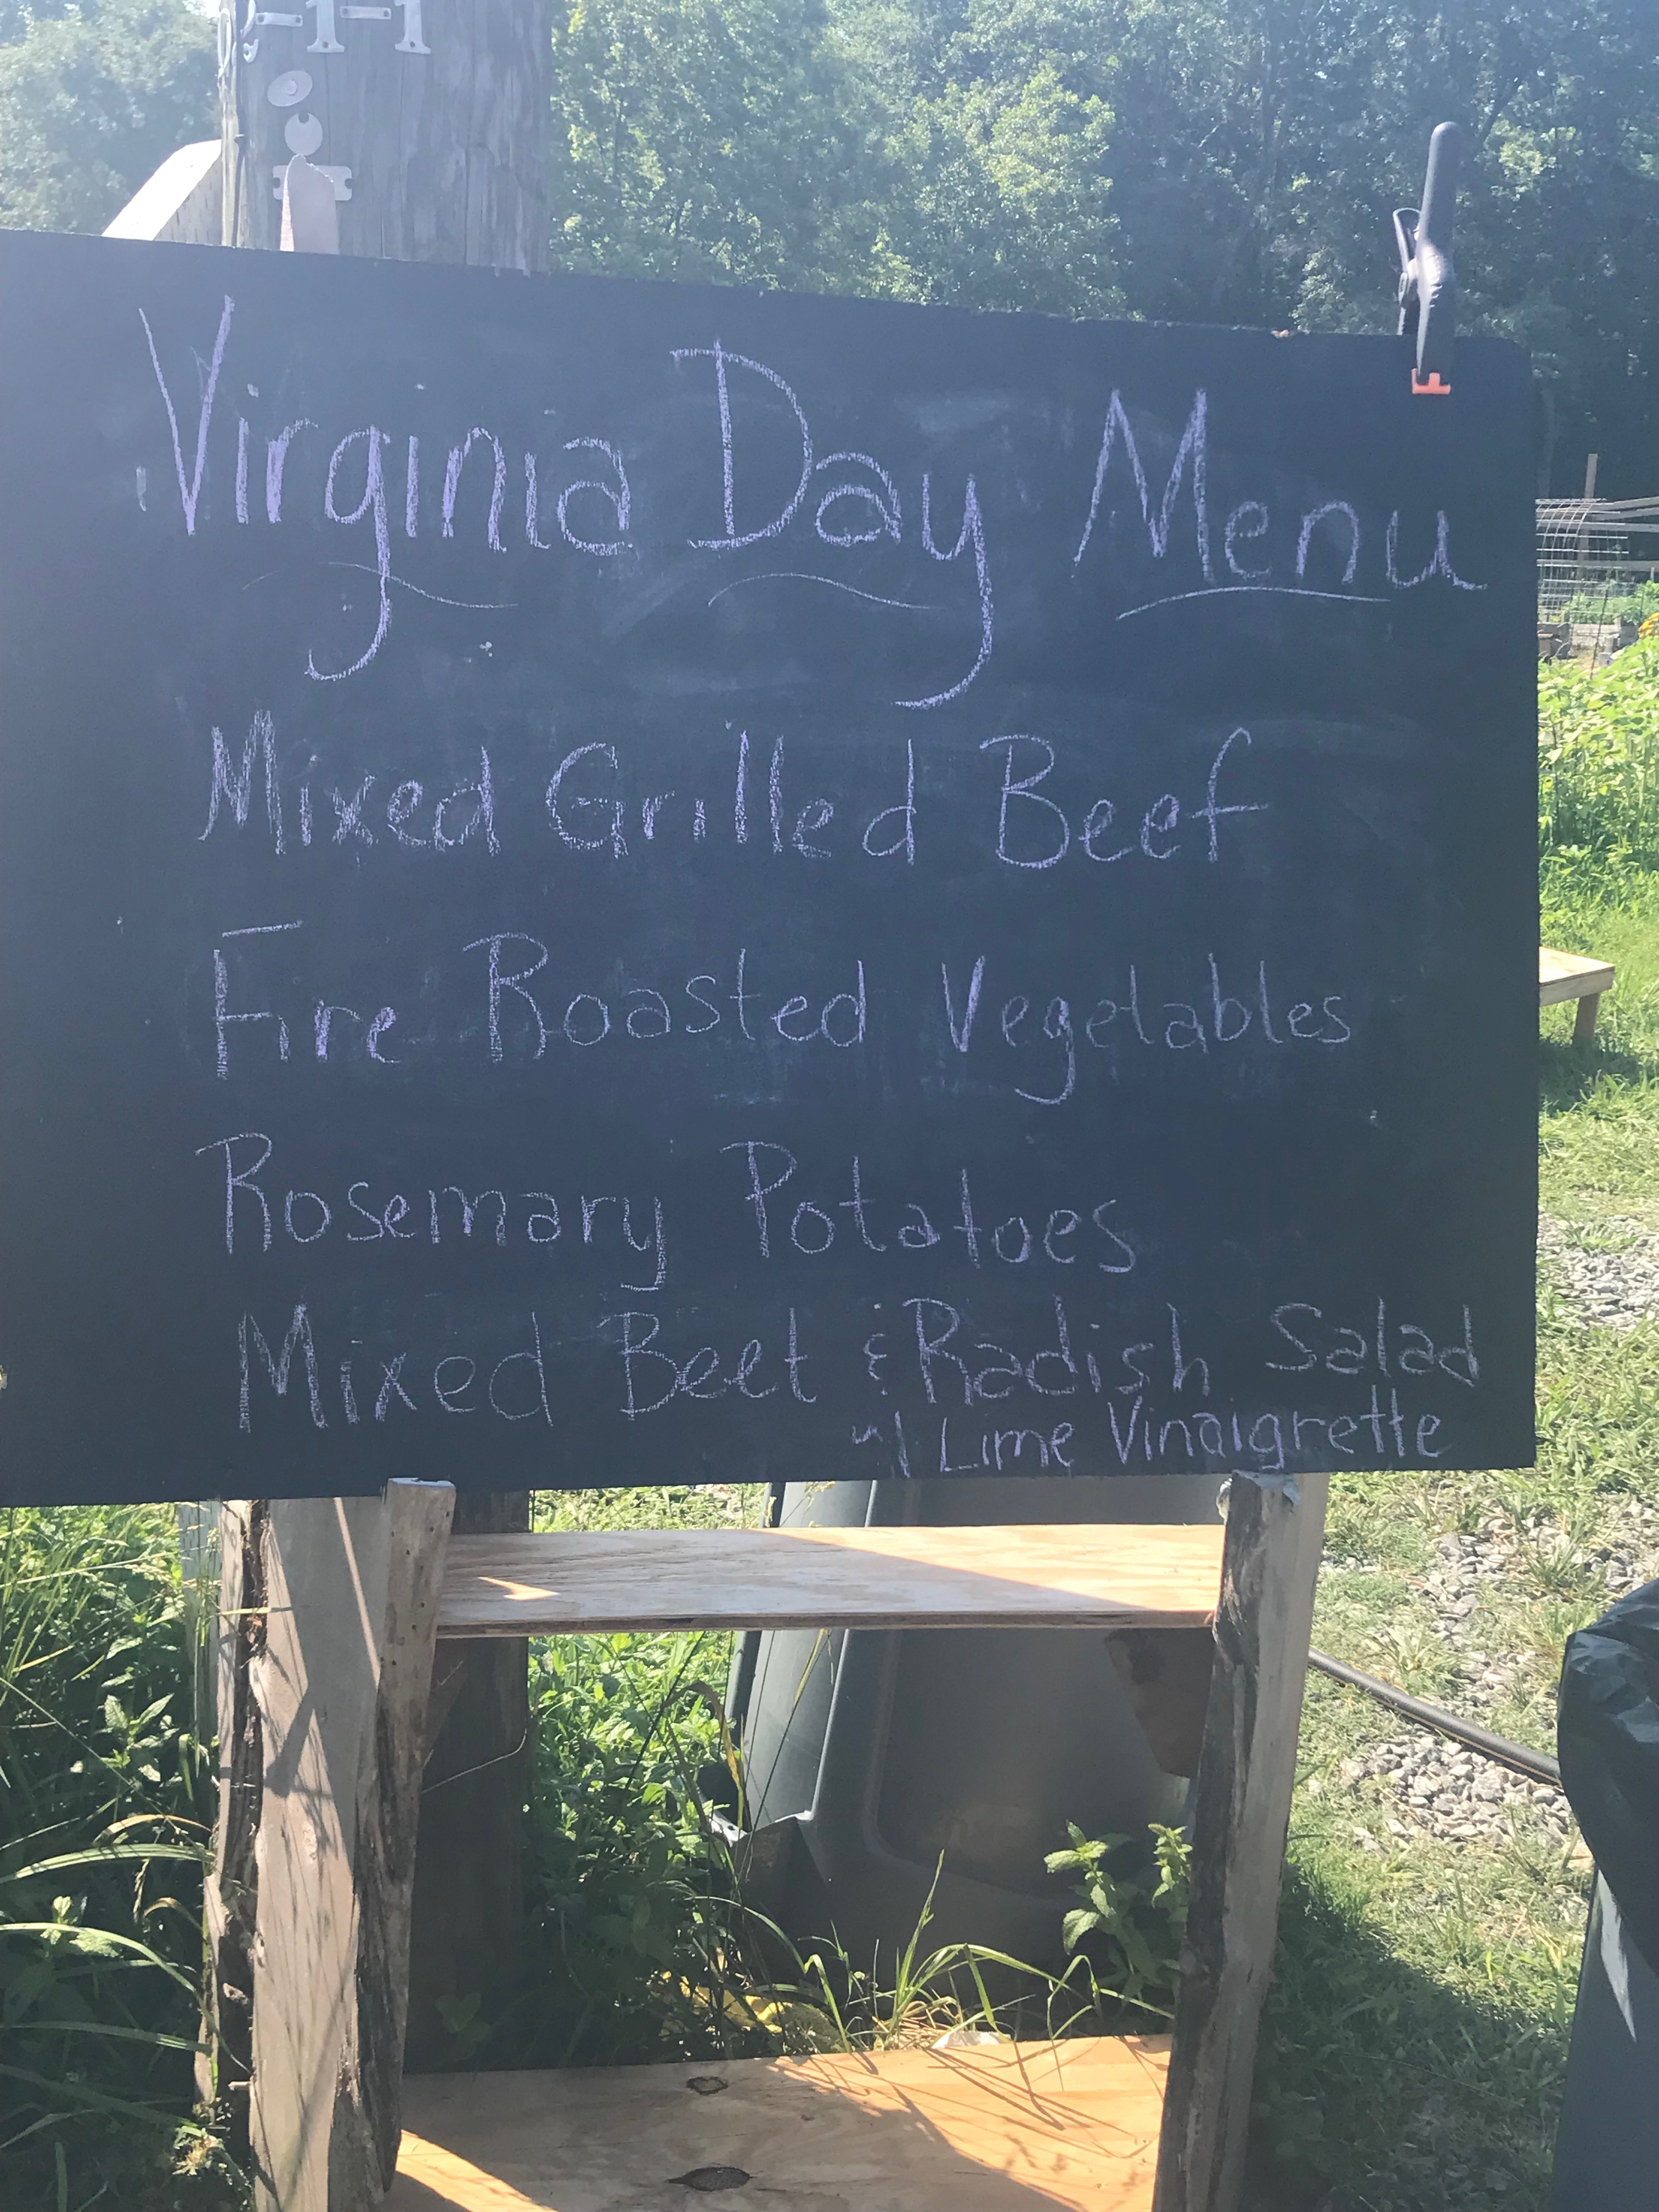 Virginia Day Menu
Mixed Grilled Beef
Fire Roasted Vegetables
Rosemary Potatoes
Mixed Beet & Radish Salad
w/ Lime Vinaigrette